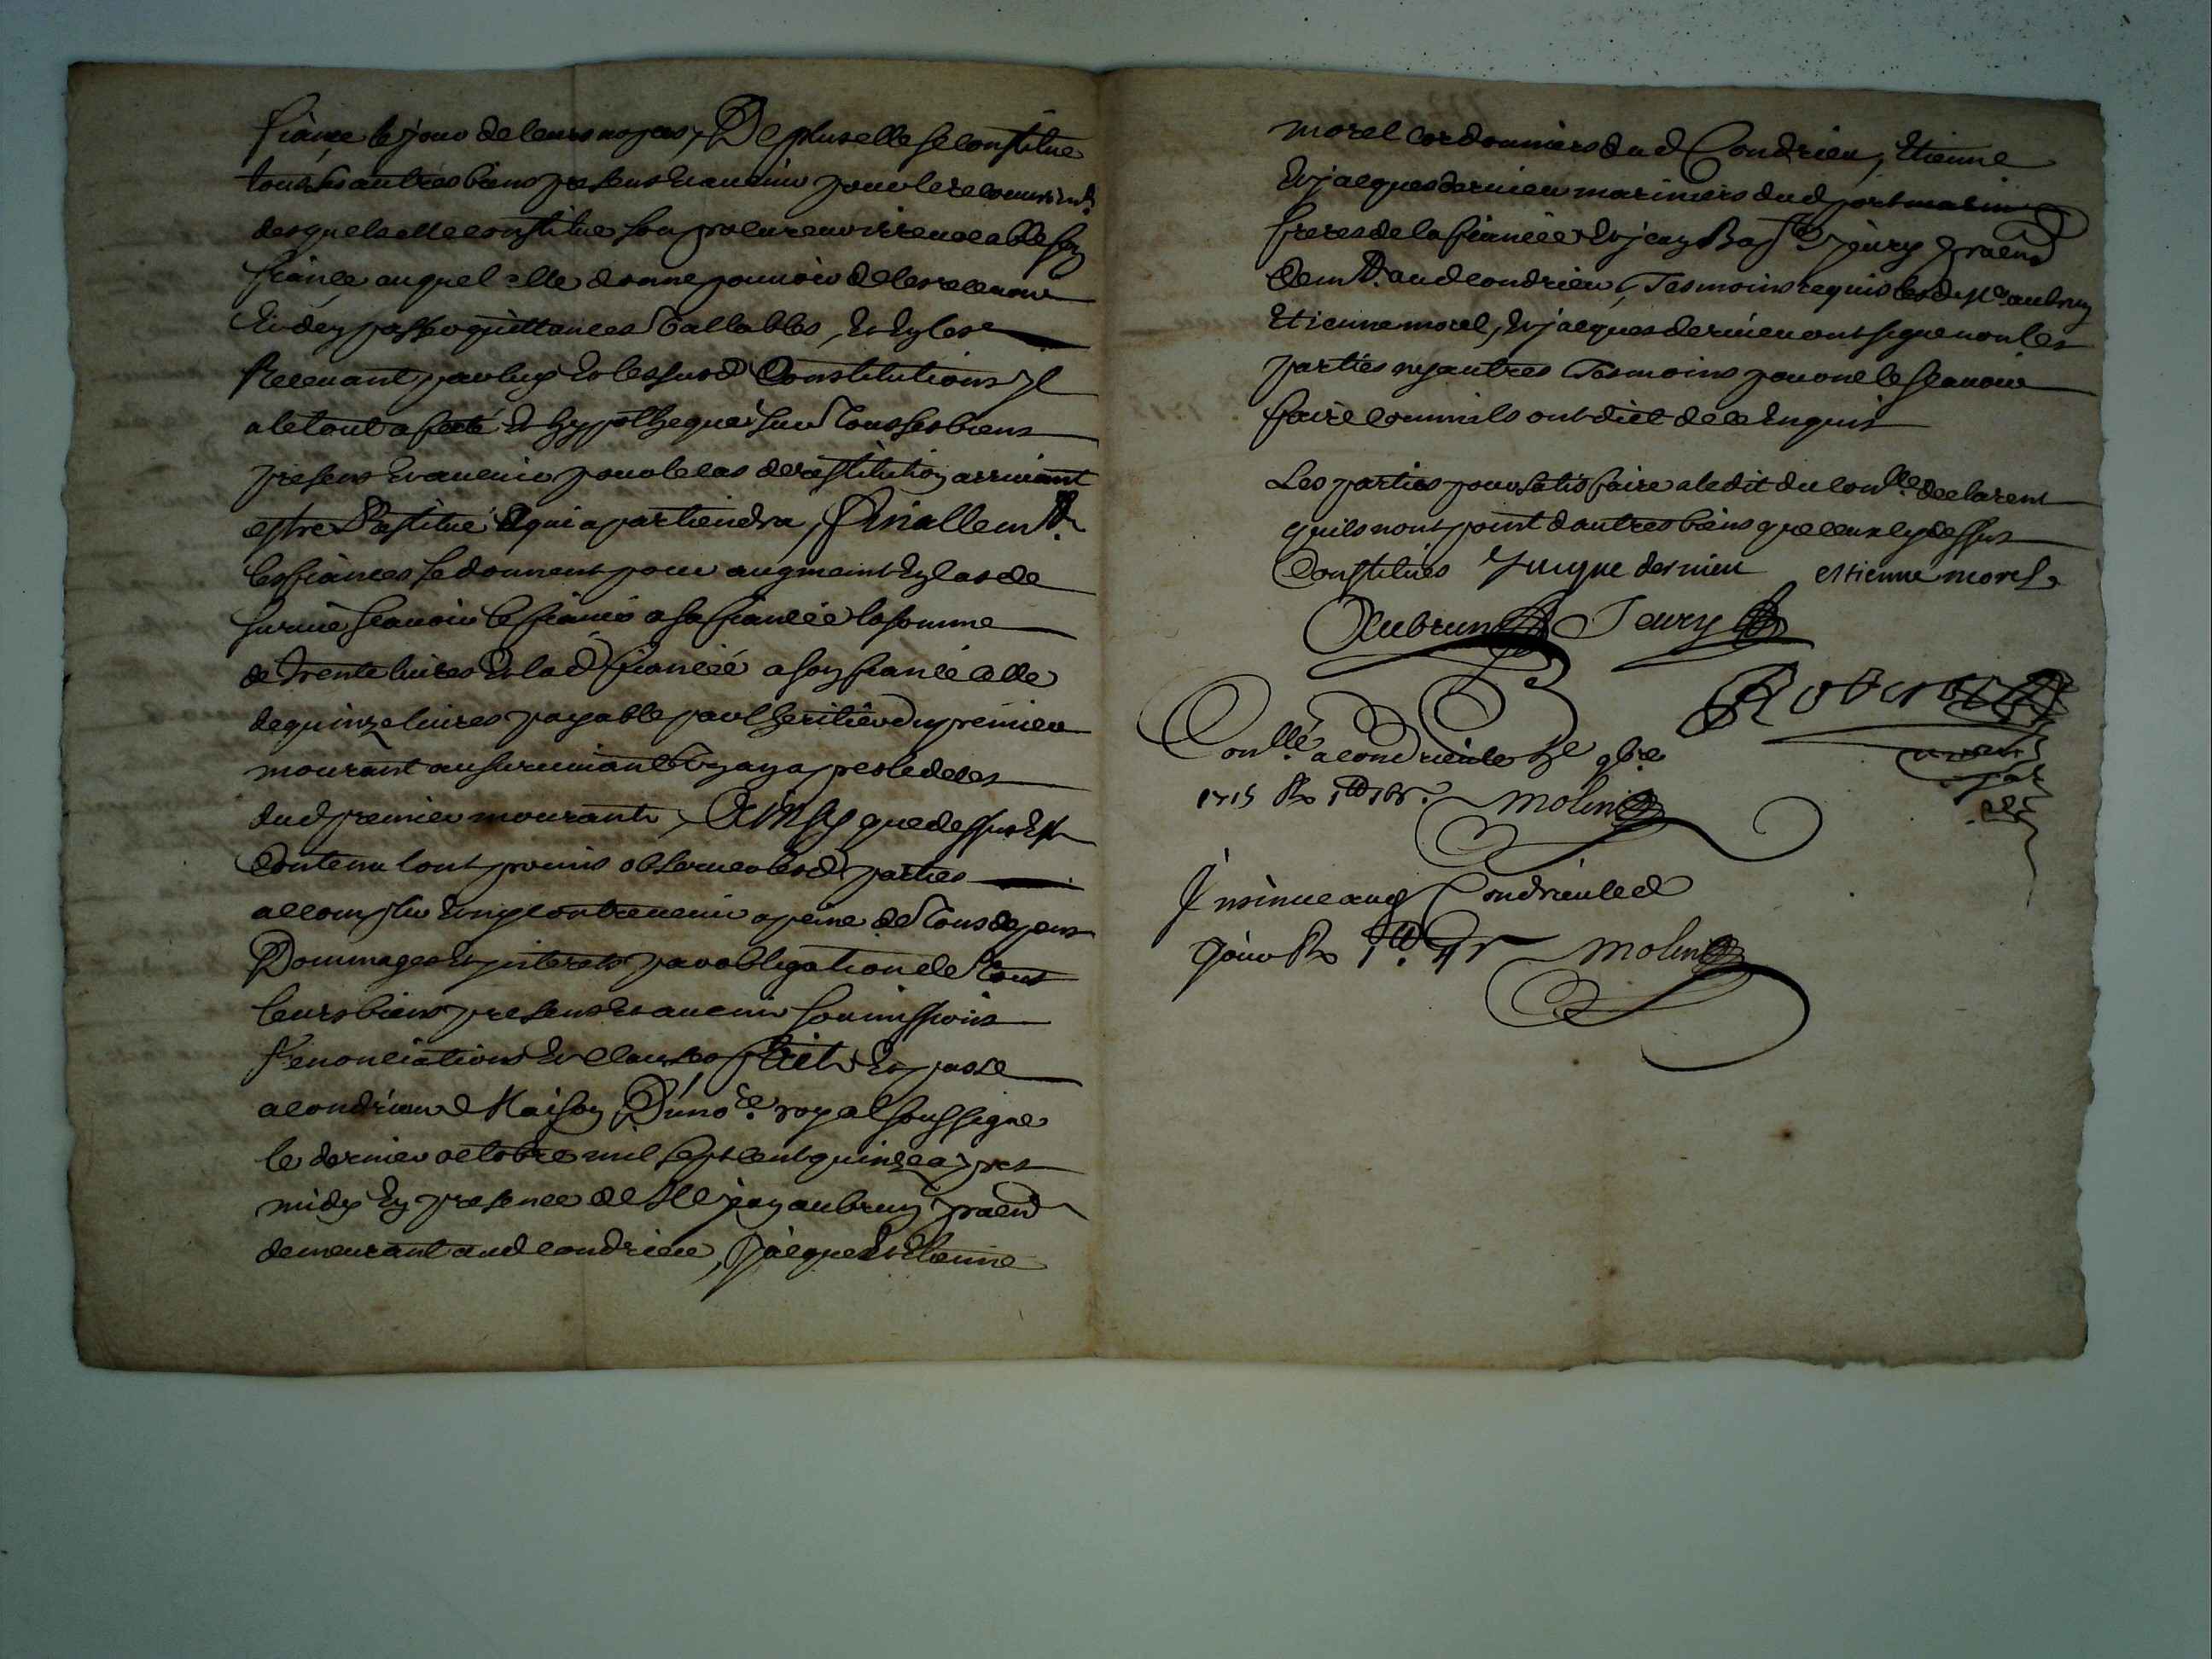 fiance le jour de leurs nopces, De plus elle se constitue
tous ses autres biens presens et avenir pour le recouvrem.t
desquels elle constitue son procureur irrevocable son
fiancé auquel elle donne pouvoir de les recevoir
et d'en passer quittances vallables, et en les
recevant par luy et les susd constitutions Il
a le tout afecté et hypothequé sur tous ses biens
presens et avenir pour le cas de restitution arrivant
estre restitué a qui apartiendra, finallem.t
les fiances se donnent pour augment en las de
survie scavoir le fiancé a sa fiancée la somme
de trente livres et lad fiancée a son fiancé celle
de quinze livres payable par l'heritier du premier
mourant au survivant apres le deces
dud premier mourant, Ainsy que dessus est
contenu l'ont promis observer lesd parties
accomplir et n'y contrevenir a peine de tous depens
Dommages et interets par obligation de tous
leurs biens presens et avenir soumissions
renonciations et clauses fait et passé
a condrieu Maison Du no.re royal soussigne
le dernier octobre mil sept cent quinze apres
midy en presence de Me jean aubrun praend
demeurant aud condrieu, jacques et etienne
morel cordonniers dud Condrieu, Etienne
et jacques dervieu mariniers dud port
freres de la fiancée et jean Bap.te jeury praend
dem.t aud condrieu, Tesmoins requis lesd Me aubrun
Etienne morel, et jacques dervieu ont signe non les
parties ny autres Tesmoins pour ne le scavoir
faire comm'ils ont dict de ce enquis
Les parties pour satisfaire a ledit du con.lle declarent
qu'ils n'ont point d'autres biens que ceux cy dessus
Constitués Jacque dervieu estienne morel
Aubrun Jeury
Robert
Con.llé a condrieu le 9b.re
1715 Rx molin
Insinue aud Condrieu led
jour Rx molin